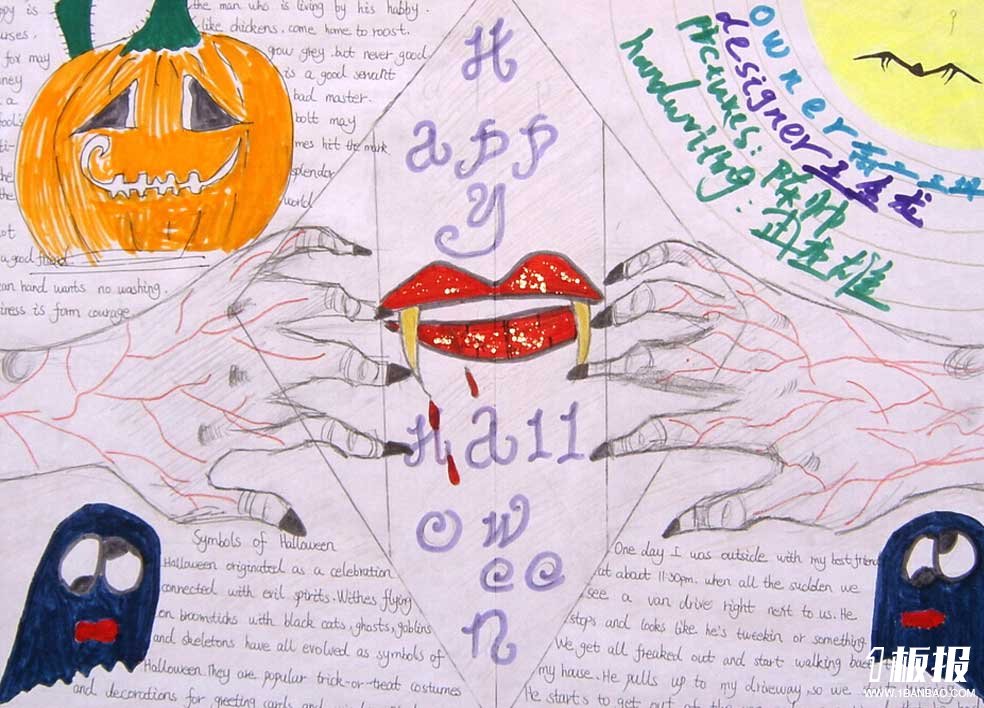 the man who is living by his habby.
like chickens, come home to roost.
grow grey, but never good
is a good servant
bad master.
bolt may
hit the mark.
splendor
world
a good friend
hand wants no washing.
is form courage
H
app
y
Hall
ow
ee
n
owner
designer
pictures:
handwriting:
Symbols of Halloween
Halloween originated as a celebration
connected with evil spirits. Withes flying
on broomsticks with black cats, ghosts, goblins
and skeletons have all evolved as symbols of
Halloween. They are popular trick-or-treat costumes
and decorations for greeting cards and
One day I was outside with my best friend
at about 11:30pm. when all the sudden we
see a van drive right next to us. He
stops and looks like he's tweekin or something.
We get all freaked out and start walking
my hause. He pulls up to my driveway, so we
He starts to get out of the
1板报
WWW.1BANBAO.COM